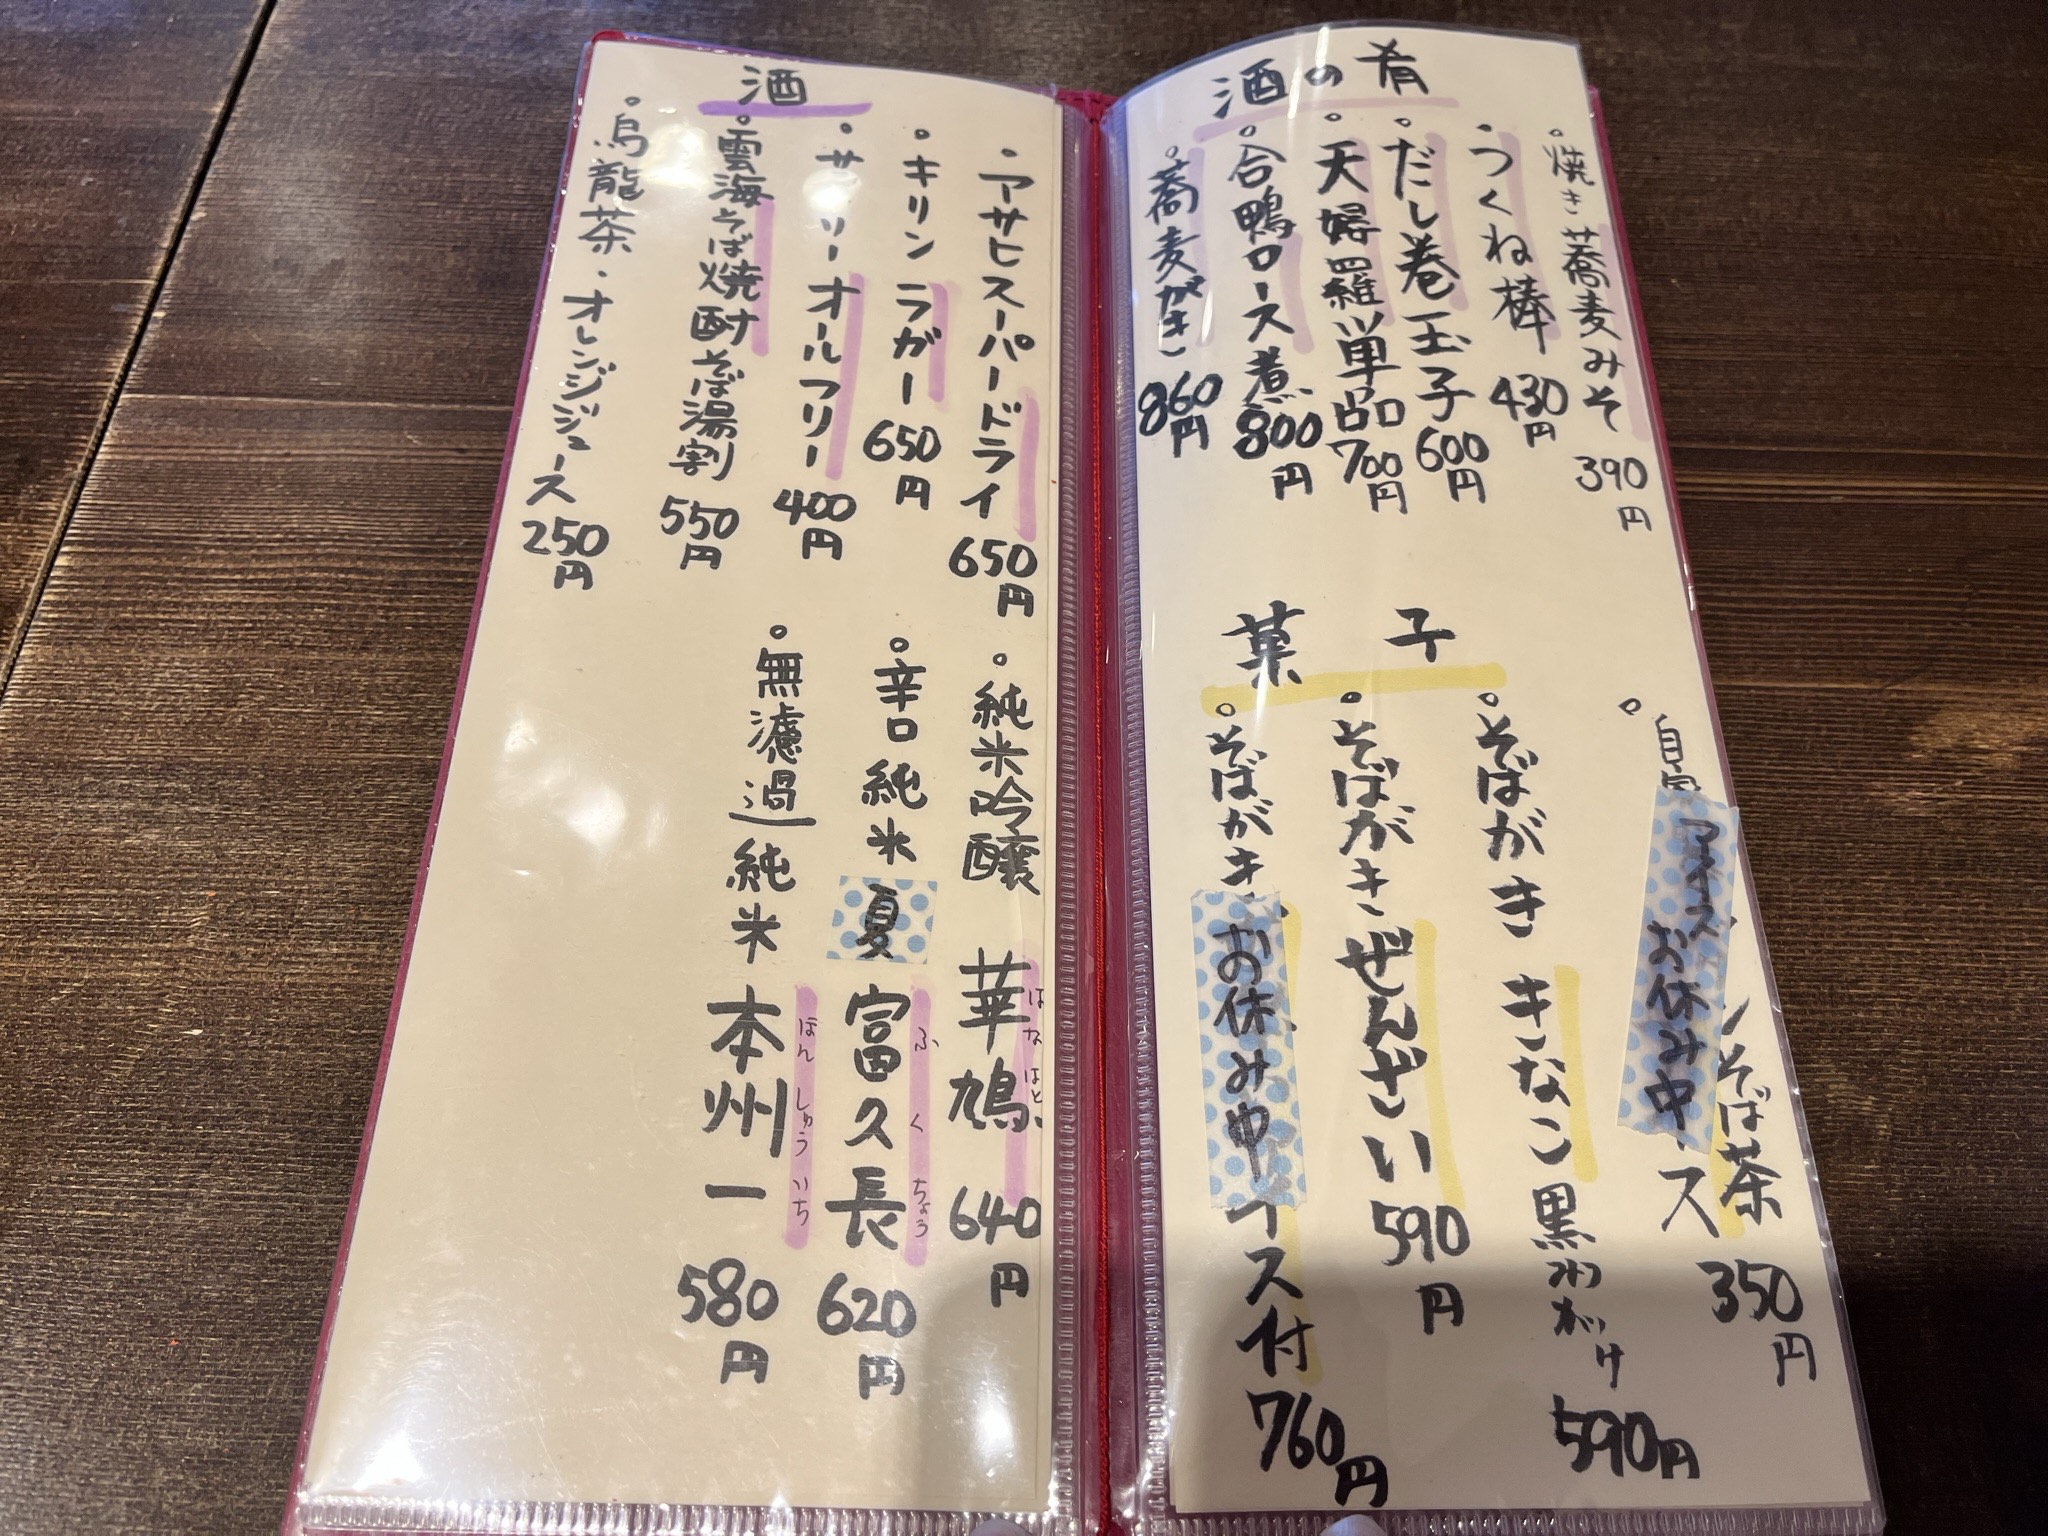 酒の肴
。焼き蕎麦みそ 390円
つくね棒 430円
。だし巻玉子 600円
。天婦羅単品 700円
。合鴨ロース煮 800円
。蕎麦がき 860円
菓子
。自家
アイス お休み中
そば茶
ス
350円
。そばがき きなこ黒みつがけ 590円
。そばがきぜんざい 590円
。そばがき
お休み中
イス付 760円
酒
・アサヒスーパードライ 650円
。キリンラガー 650円
・サントリーオールフリー 400円
。雲海そば焼酎そば湯割 550円
。烏龍茶・オレンジジュース 250円
。純米吟醸 華鳩 640円
はなはと
。辛口純米 夏 富久長 620円
ふくちょう
。無濾過純米 本州一 580円
ほんしゅういち